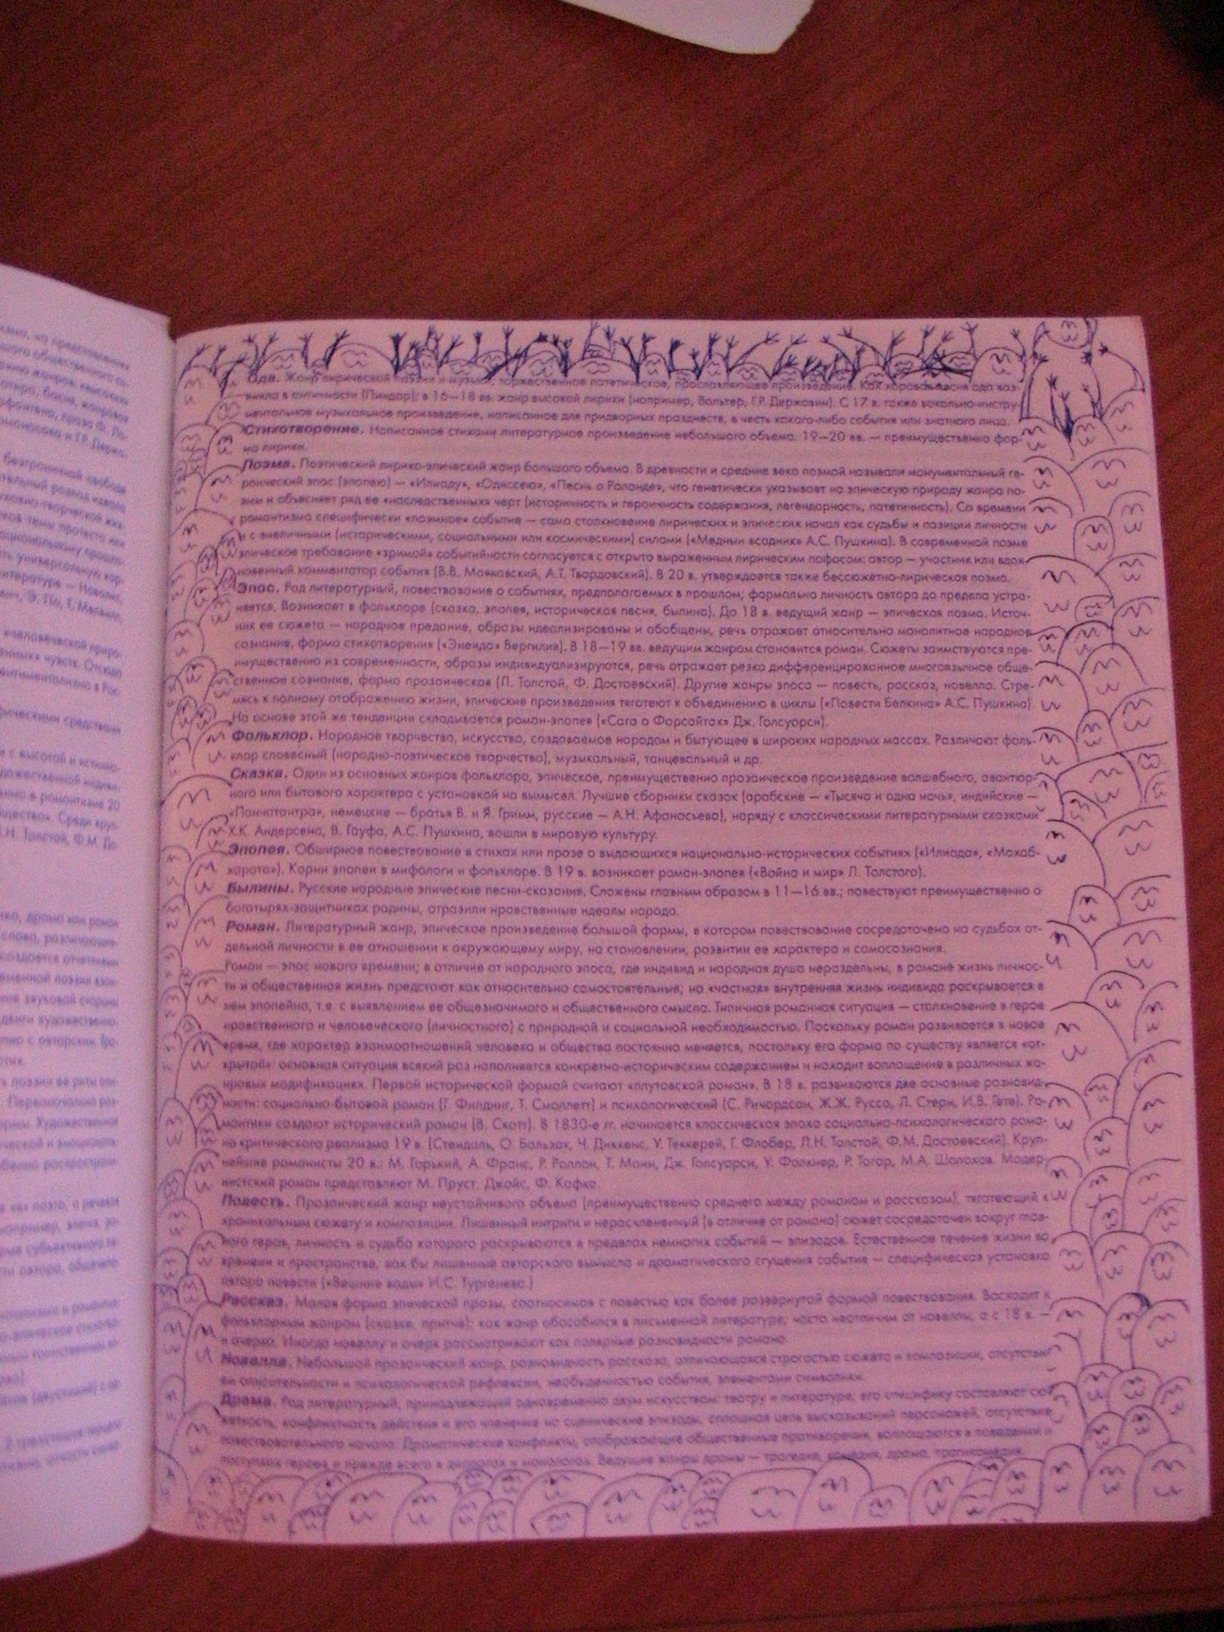 Ода. Жанр лирической поэзии и музыки; торжественное патетическое, прославляющее произведение. Как хоровая песня ода воз-
никла в античности (Пиндар); в 16—18 вв. жанр высокой лирики (например, Вольтер, Г.Р. Державин). С 17 в. также вокально-инстру-
ментальное музыкальное произведение, написанное для придворных празднеств, в честь какого-либо события или знатного лица.
Стихотворение. Написанное стихами литературное произведение небольшого объема. 19—20 вв. — преимущественно фор-
ма лирики.
Поэма. Поэтический лирико-эпический жанр большого объема. В древности и средние века поэмой называли монументальный ге-
роический эпос (эпопею) — «Илиаду», «Одиссею», «Песнь о Роланде», что генетически указывает на эпическую природу жанра по-
эмы и объясняет ряд ее «наследственных» черт (историчность и героичность содержания, легендарность, патетичность). Со времени
романтизма специфически «поэмное» событие — само столкновение лирических и эпических начал как судьбы и позиции личности
и с внеличными (историческими, социальными или космическими) силами («Медный всадник» А.С. Пушкина). В современной поэме
эпическое требование «зримой» событийности согласуется с открыто выраженным лирическим пафосом: автор — участник или вдох-
новенный комментатор события (В.В. Маяковский, А.Т. Твардовский). В 20 в. утверждается также бессюжетно-лирическая поэма.
Эпос. Род литературный, повествование о событиях, предполагаемых в прошлом; формально личность автора до предела устра-
няется. Возникает в фольклоре (сказка, эпопея, историческая песня, былина). До 18 в. ведущий жанр — эпическая поэма. Источ-
ник ее сюжета — народное предание, образы идеализированы и обобщены, речь отражает относительно монолитное народное
сознание, форма стихотворения («Энеида» Вергилия). В 18—19 вв. ведущим жанром становится роман. Сюжеты заимствуются пре-
имущественно из современности, образы индивидуализируются, речь отражает резко дифференцированное многоязычное обще-
ственное сознание, форма прозаическая (Л. Толстой, Ф. Достоевский). Другие жанры эпоса — повесть, рассказ, новелла. Стре-
мясь к полному отображению жизни, эпические произведения тяготеют к объединению в циклы («Повести Белкина» А.С. Пушкина).
На основе этой же тенденции складывается роман-эпопея («Сага о Форсайтах» Дж. Голсуорси).
Фольклор. Народное творчество, искусство, создаваемое народом и бытующее в широких народных массах. Различают фоль-
клор словесный (народно-поэтическое творчество), музыкальный, танцевальный и др.
Сказка. Один из основных жанров фольклора, эпическое, преимущественно прозаическое произведение волшебного, авантюр-
ного или бытового характера с установкой на вымысел. Лучшие сборники сказок (арабские — «Тысяча и одна ночь», индийские —
«Панчатантра», немецкие — братья В. и Я. Гримм, русские — А.Н. Афанасьева), наряду с классическими литературными сказками
Х.К. Андерсена, В. Гауфа, А.С. Пушкина, вошли в мировую культуру.
Эпопея. Обширное повествование в стихах или прозе о выдающихся национально-исторических событиях («Илиада», «Махаб-
харата»). Корни эпопеи в мифологи и фольклоре. В 19 в. возникает роман-эпопея («Война и мир» Л. Толстого).
Былины. Русские народные эпические песни-сказания. Сложены главным образом в 11—16 вв.; повествуют преимущественно о
богатырях-защитниках родины, отразили нравственные идеалы народа.
Роман. Литературный жанр, эпическое произведение большой формы, в котором повествование сосредоточено на судьбах от-
дельной личности в ее отношении к окружающему миру, на становлении, развитии ее характера и самосознания.
Роман — эпос нового времени; в отличие от народного эпоса, где индивид и народная душа нераздельны, в романе жизнь личнос-
ти и общественная жизнь предстают как относительно самостоятельные; но «частная» внутренняя жизнь индивида раскрывается в
нем эпопейно, т.е. с выявлением ее общезначимого и общественного смысла. Типичная романная ситуация — столкновение в герое
нравственного и человеческого (личностного) с природной и социальной необходимостью. Поскольку роман развивается в новое
время, где характер взаимоотношений человека и общества постоянно меняется, постольку его форма по существу является «от-
крытой»: основная ситуация всякий раз наполняется конкретно-историческим содержанием и находит воплощение в различных жа-
нровых модификациях. Первой исторической формой считают «плутовской роман». В 18 в. развиваются две основные разновид-
ности: социально-бытовой роман (Г. Филдинг, Т. Смоллетт) и психологический (С. Ричардсон, Ж.Ж. Руссо, Л. Стерн, И.В. Гете). Ро-
мантики создают исторический роман (В. Скотт). В 1830-е гг. начинается классическая эпоха социально-психологического рома-
на критического реализма 19 в. (Стендаль, О. Бальзак, Ч. Диккенс, У. Теккерей, Г. Флобер, Л.Н. Толстой, Ф.М. Достоевский). Круп-
нейшие романисты 20 в.: М. Горький, А. Франс, Р. Роллан, Т. Манн, Дж. Голсуорси, У. Фолкнер, Р. Тагор, М.А. Шолохов. Модер-
нистский роман представляют М. Пруст, Джойс, Ф. Кафка.
Повесть. Прозаический жанр неустойчивого объема (преимущественно среднего между романом и рассказом), тяготеющий к
хроникальным сюжету и композиции. Лишенный интриги и нерасчлененный (в отличие от романа) сюжет сосредоточен вокруг глав-
ного героя, личность и судьба которого раскрываются в пределах немногих событий — эпизодов. Естественное течение жизни во
времени и пространстве, как бы лишенные авторского вымысла и драматического сгущения события — специфическая установка
автора повести («Вешние воды» И.С. Тургенева.)
Рассказ. Малая форма эпической прозы, соотносимая с повестью как более развернутой формой повествования. Восходит к
фольклорным жанрам (сказке, притче); как жанр обособился в письменной литературе; часто неотличим от новеллы, а с 18 в. —
и очерка. Иногда новеллу и очерк рассматривают как полярные разновидности романа.
Новелла. Небольшой прозаический жанр, разновидность рассказа, отличающаяся строгостью сюжета и композиции, отсутстви-
ем описательности и психологической рефлексии, необыденностью события, элементами символики.
Драма. Род литературный, принадлежащий одновременно двум искусствам: театру и литературе; его специфику составляют сю-
жетность, конфликтность действия и его членение на сценические эпизоды, сплошная цепь высказываний персонажей, отсутствие
повествовательного начала. Драматические конфликты, отображающие общественные противоречия, воплощаются в поведении и
поступках героев и прежде всего в диалогах и монологах. Ведущие жанры драмы — трагедия, комедия, драма, трагикомедия.